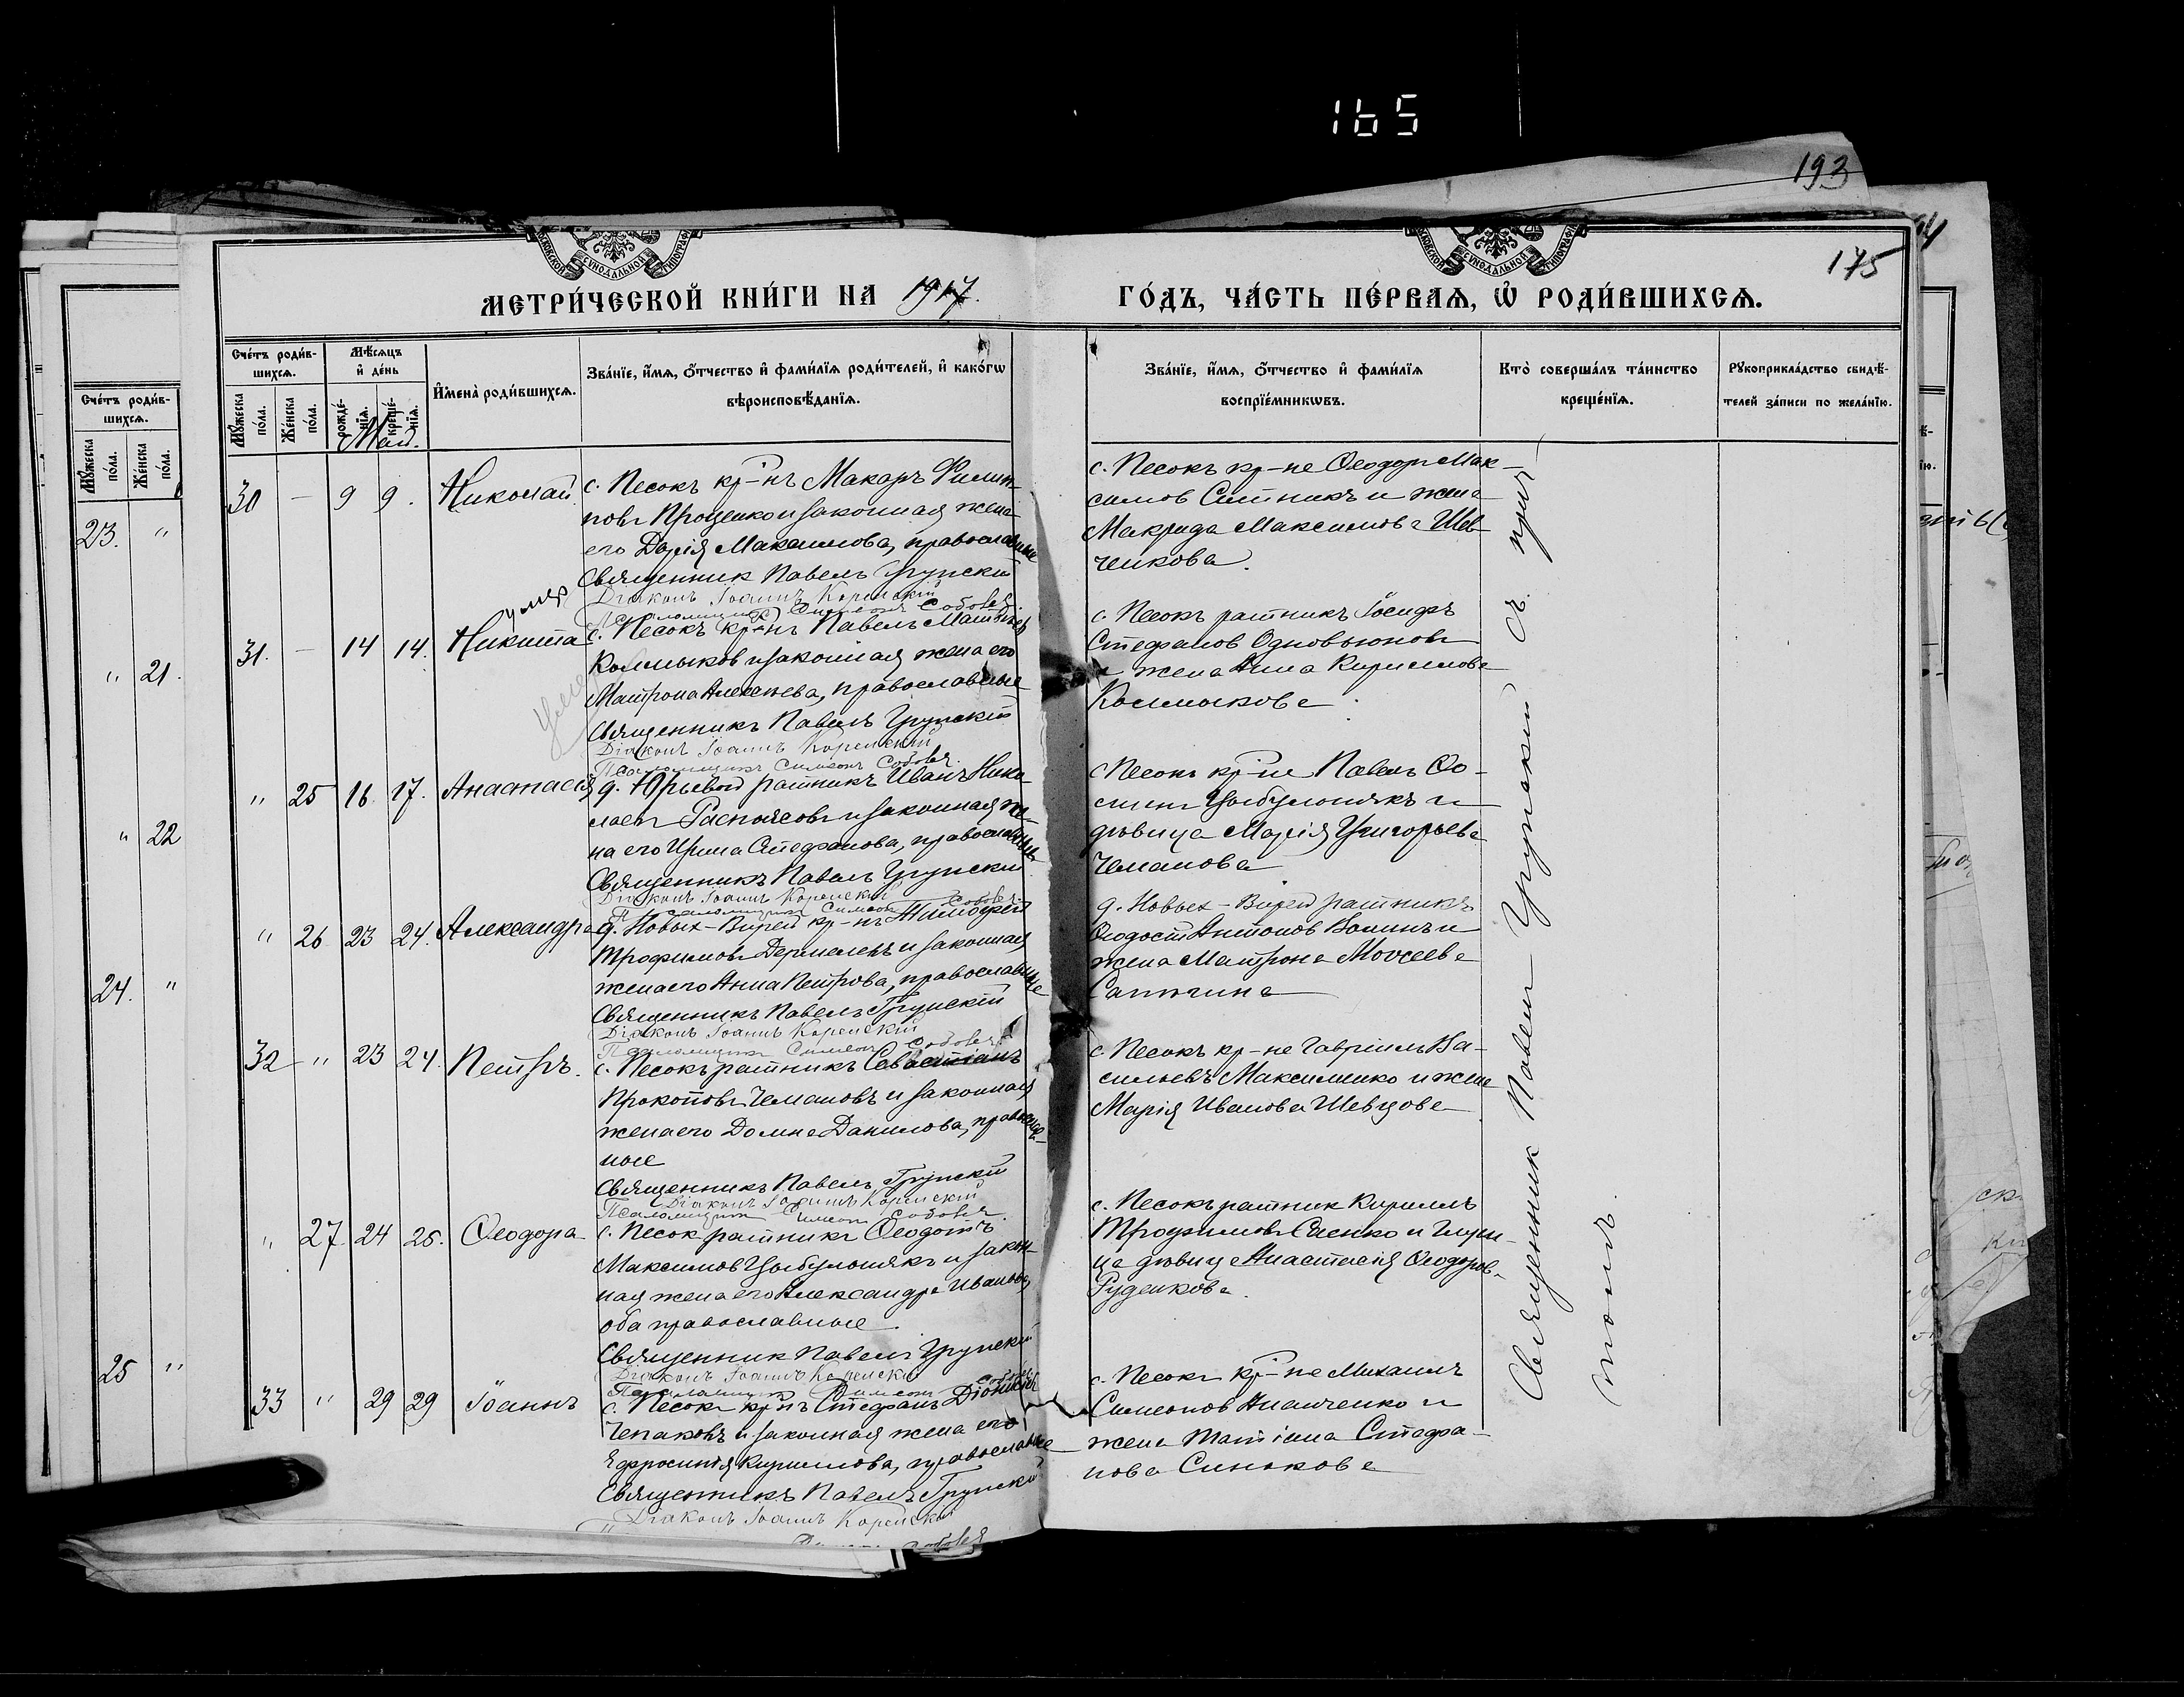 165
193
175
МЕТРИ́ЧЕСКОЙ КНИ́ГИ НА 1917.
ГО́ДЪ, ЧА́СТЬ ПЕ́РВАѦ, Ѡ҆ РОДИ́ВШИХСѦ.
Сче́тъ роди́в-
шихсѧ.
Мѣ́сѧцъ
и҆ де́нь
И҆мена̀ роди́вшихсѧ.
Зва́нїе, и҆́мѧ, ѻ҆́тчество и҆ фами́лїѧ роди́телей, и҆ како́гѡ
вѣроисповѣ́данїѧ.
Зва́нїе, и҆́мѧ, ѻ҆́тчество и҆ фами́лїѧ
воспрїе́мникѡвъ.
Кто̀ соверша́лъ та́инство
креще́нїѧ.
Рꙋкоприкла́дство свидѣ́-
телей за́писи по жела́нїю.
Мꙋ́жеска
по́ла.
Же́нска
по́ла.
рожде́-
нїѧ.
креще́-
нїѧ.
Май.
30 — 9 9. Николай
с. Песокъ кр-нъ Макаръ Филип-
повъ Проценко и законная жена
его Дарія Максимова, православные
Священник Павелъ Грунскій
Діаконъ Іоаннъ Коренскій
Псаломщикъ Симеонъ Соболев.
с. Песокъ кр-не Ѳеодоръ Мак-
симов Ситникъ и жена
Макрида Максимова Шев-
ченкова.
умер
31. — 14 14. Никита
с. Песокъ кр-нъ Павелъ Матвѣев
Колмыков и законная жена его
Матрона Алексеева, православные
Священникъ Павелъ Грунскій
Діаконъ Іоаннъ Коренскій
Псаломщикъ Симеонъ Соболев.
с. Песокъ ратникъ Іосифъ
Стефанов
и жена Анна Кириллова
Колмыкова
" 25 16 17. Анастасія
д. Юрьевой ратникъ Иванъ Нико-
лаевъ Распоясовъ и законная же-
на его Ирина Стефанова, православные
Священникъ Павелъ Грунскій
Діаконъ Іоаннъ Коренскій
Псаломщикъ Симеонъ Соболев.
с Песокъ кр-не Павелъ Ѳо-
мин Цыбульнякъ и
дѣвица Марія Григорьева
Чеманова
" 26 23 24. Александра
д. Новых-Вирей кр-нъ Тимофей
Трофимовъ и законная
жена его Анна Петрова, православные
Священникъ Павелъ Грунскій
Діаконъ Іоаннъ Коренскій
Псаломщикъ Симеонъ Соболев.
д. Новых-Вирей ратникъ
Антонов и
жена Матрона Моисеева
32 — " 23 24. Петръ.
с. Песокъ ратникъ Севастіанъ
Прокоповъ Чемановъ и законная
жена его Домна Данилова, православ-
ные
Священникъ Павелъ Грунскій
Діаконъ Іоаннъ Коренскій
Псаломщикъ Симеон Соболев.
с. Песокъ кр-не Гавріилъ Ва-
сильевъ Максименко и жена
Марія Иванова Шевцова
" 27 24 25. Ѳеодора
с. Песок ратникъ Ѳеодотъ
Максимов Цыбульнякъ и закон-
ная жена его Александра Иванова
оба православные.
Священник Павелъ Грунскій
Діаконъ Іоаннъ Коренскій
Псаломщикъ Симеон Соболев
с. Песокъ ратник Кириллъ
Трофимовъ Саенко и
дѣвица Анастасія Ѳеодоров.
Руденкова.
33 " 29 29 Іоаннъ
с. Песокъ кр-нъ Стефанъ Діонисіев
Чепаковъ и законная жена его
Ефросинія Кириллова, православные
Священникъ Павелъ Грунскій
Діаконъ Іоаннъ Коренскій
Соболев
с. Песокъ кр-не Михаилъ
Симеонов Ананченко и
жена Татіана Стефа-
нова Синякова
Священник Павелъ Грунский съ прич-
томъ.
Сче́тъ роди́в-
шихсѧ.
Мꙋ́жеска
по́ла.
Же́нска
по́ла.
23. "
" 21.
" 22
24. "
25 "